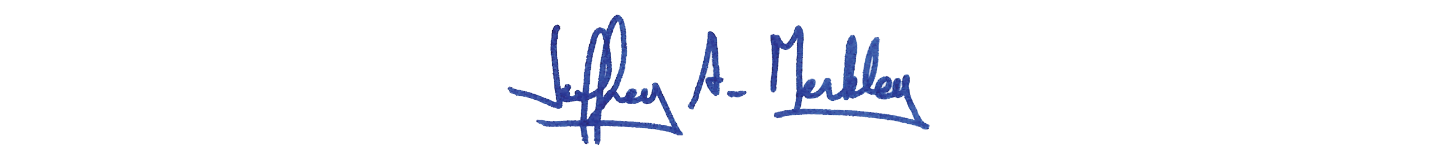 Jeffrey A- Merkley